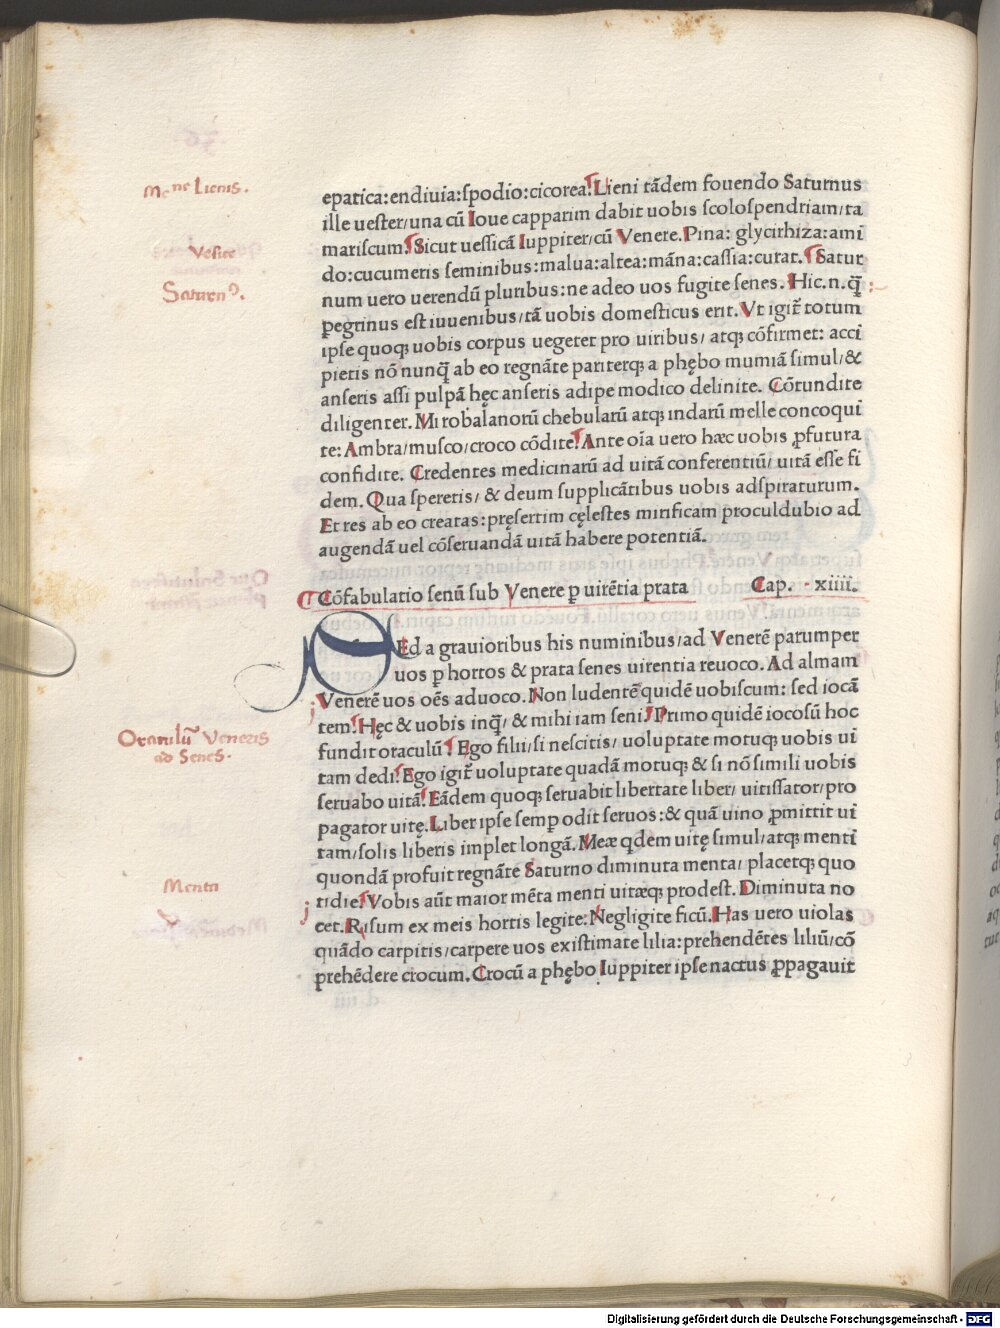 epatica:endiuia:spodio:cicorea. Lieni tãdem fouendo Saturnus
ille uester/una cũ Ioue capparim dabit uobis scolospendriam/ta
mariscum. Sicut uessicã Iuppiter/cũ Venere. Pina: glycirhiza:ami
do:cucumeris seminibus:malua:altea:mãna:cassia:curat. Satur
num uero uerendũ pluribus:ne adeo uos fugite senes. Hic.n.q̃
ꝑegrinus est iuuenibus/tã uobis domesticus erit. Vt igit᷑ totum
ipse quoqꝫ uobis corpus uegetet pro uiribus/ atqꝫ cõfirmet: acci
pietis nõ nunq̃ ab eo regnãte pariterqꝫ a phębo mumiã simul/&
anseris assi pulpã hęc anseris adipe modico delinite. Cõtundite
diligenter. Mirobalanorũ chebularũ atqꝫ indarũ melle concoqui
te: Ambra/musco/croco cõdite. Ante oĩa uero hæc uobis ꝓfutura
confidite. Credentes medicinarũ ad uitã conferentiũ/ uitã esse fi
dem. Qua speretis/ & deum supplicãtibus uobis adspiraturum.
Et res ab eo creatas:pręsertim cęlestes mirificam proculdubio ad
augendã uel cõseruandã uitã habere potentiã.
Cõfabulatio senũ sub Venere ꝑ uirẽtia prata Cap. xiiii.
Sed a grauioribus his numinibus/ad Venerẽ parumper
uos ꝑ hortos & prata senes uirentia reuoco. Ad almam
Venerẽ uos oẽs aduoco. Non ludentẽ quidẽ uobiscum: sed iocã
tem. Hęc & uobis inq̃/ & mihi iam seni. Primo quidẽ iocosũ hoc
fundit oraculũ. Ego filii/si nescitis/ uoluptate motuqꝫ uobis ui
tam dedi. Ego igit᷑ uoluptate quadã motuqꝫ & si nõ simili uobis
seruabo uitã. Eãdem quoqꝫ seruabit libertate liber/ uitissator/pro
pagator uitę. Liber ipse semꝑ odit seruos:& quã uino ꝓmittit ui
tam/solis liberis implet longã. Meæ qdem uitę simul/atqꝫ menti
quondã profuit regnãte Saturno diminuta menta/ placetqꝫ quo
tidie. Vobis aũt maior mẽta menti uitæqꝫ prodest. Diminuta no
cet. Risum ex meis hortis legite: Negligite ficũ. Has uero uiolas
quãdo carpitis/carpere uos existimate lilia:prehendẽtes liliũ/cõ
prehẽdere crocum. Crocũ a phębo Iuppiter ipse nactus ꝓpagauit
Lienis.
Vesice
Saturnꝰ.
Oraculũ Veneris
ad Senes.
Menta
Digitalisierung gefördert durch die Deutsche Forschungsgemeinschaft - DFG